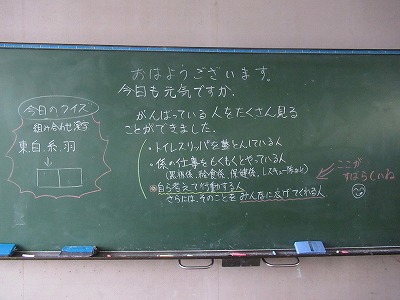 おはようございます。
今日も元気ですか。
がんばっている人をたくさん見る
ことができました。
・トイレスリッパを整とんしている人
・係の仕事をもくもくとやっている人
(黒板係、給食係、保健係、レスキュー係など)
・自ら考えて行動する人
さらには、そのことをみんなに広げてくれる人
ここが
すばらしいね
今日のクイズ
組み合わせ漢字
東、白、糸、羽